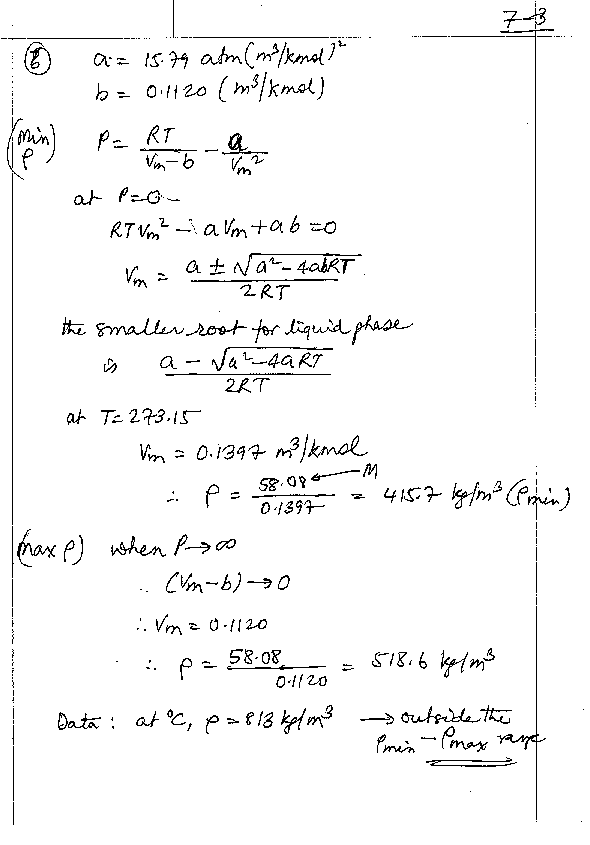 7-3
(b) a = 15.79 atm (m³/kmol)²
b = 0.1120 (m³/kmol)
(min ρ) P = RT/(Vm-b) - a/Vm²
at P=0 -
RTVm² - aVm + ab = 0
Vm = (a ± √(a² - 4abRT))/(2RT)
the smaller root for liquid phase
is (a - √(a² - 4aRT))/(2RT)
at T=273.15
Vm = 0.1397 m³/kmol
∴ ρ = 58.08/0.1397 ← M = 415.7 kg/m³ (ρmin)
(max ρ) when P→∞
∴ (Vm-b)→0
∴ Vm = 0.1120
∴ ρ = 58.08/0.1120 = 518.6 kg/m³
Data: at °C, ρ = 813 kg/m³ → outside the
ρmin - ρmax range